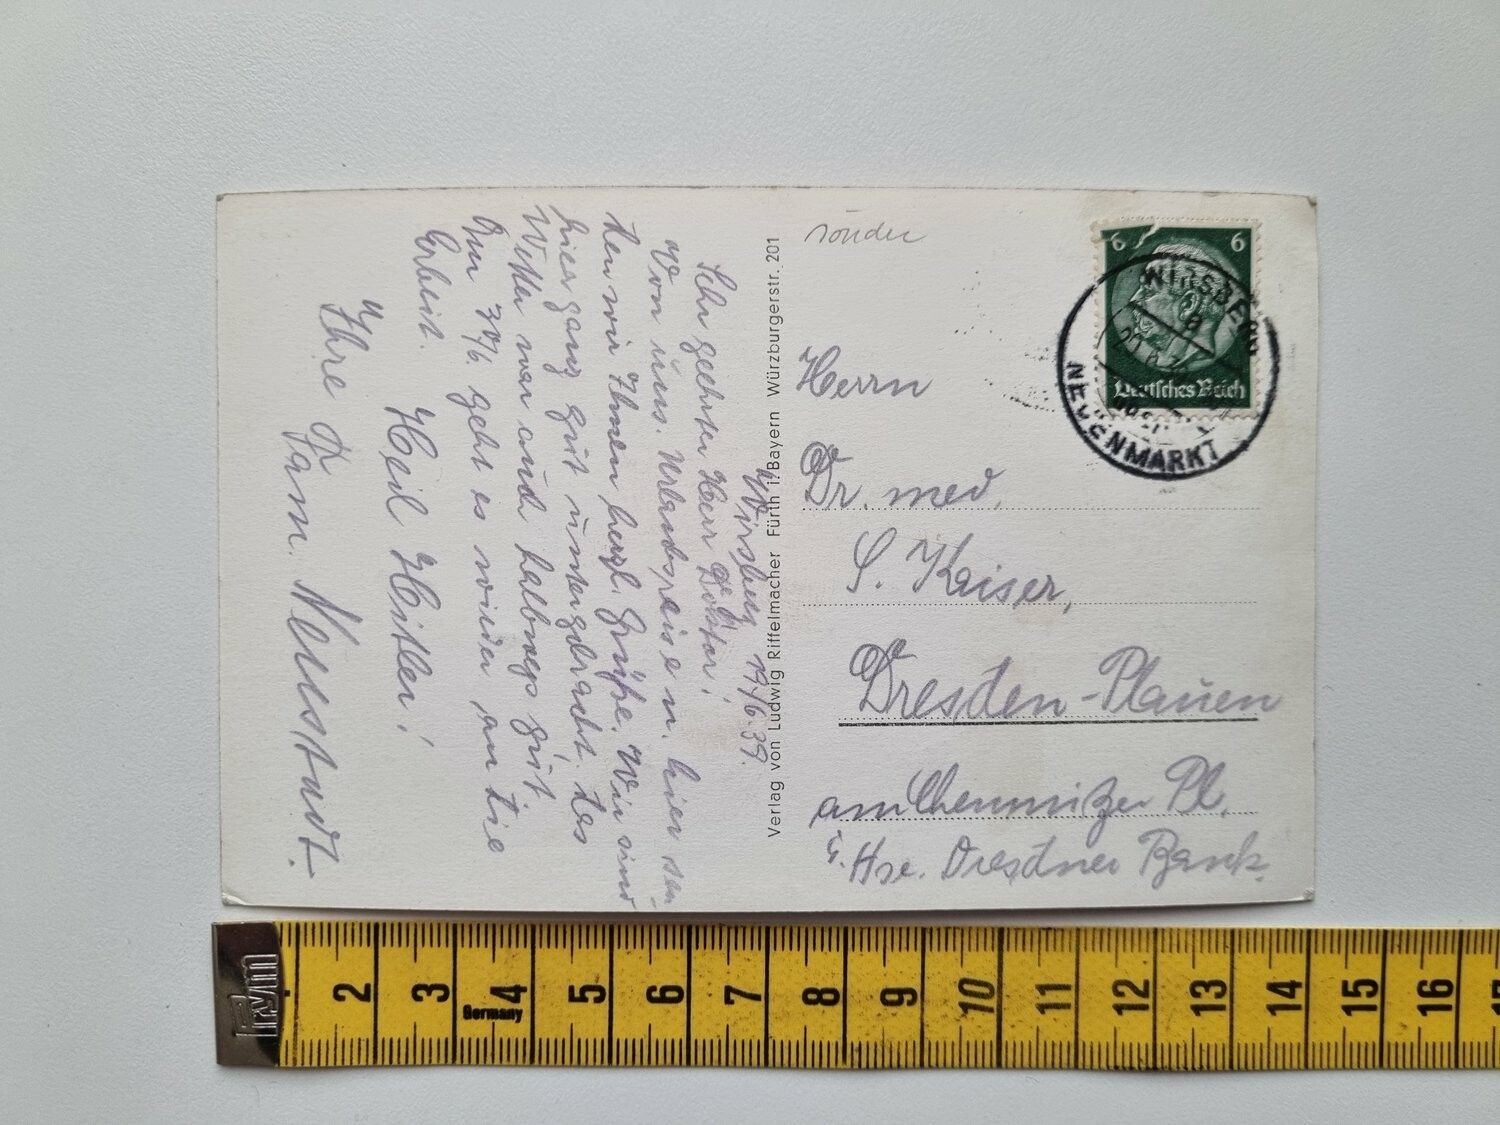 Wirsberg 17/6.39.
Sehr geehrter Herr Doktor!
Von uns. Urlaubsreise n. hier sen-
den wir Ihnen herzl. Grüße. Wir sind
hier ganz gut untergebracht. Das
Wetter war auch halbwegs gut.
Am 30/6. geht es wieder an die
Arbeit.
Heil Hitler!
Ihre
Fam. Neustadt.
Verlag von Ludwig Riffelmacher Fürth i. Bayern Würzburgerstr. 201
sonder
6 6
Deutsches Reich
WIRSBERG
NEUENMARKT
Herrn
Dr. med.
S. Kaiser,
Dresden-Plauen
am Chemnitzer Pl.
i. Hse. Dresdner Bank.
Prym
2 3 4 5 6 7 8 9 10 11 12 13 14 15 16
Germany